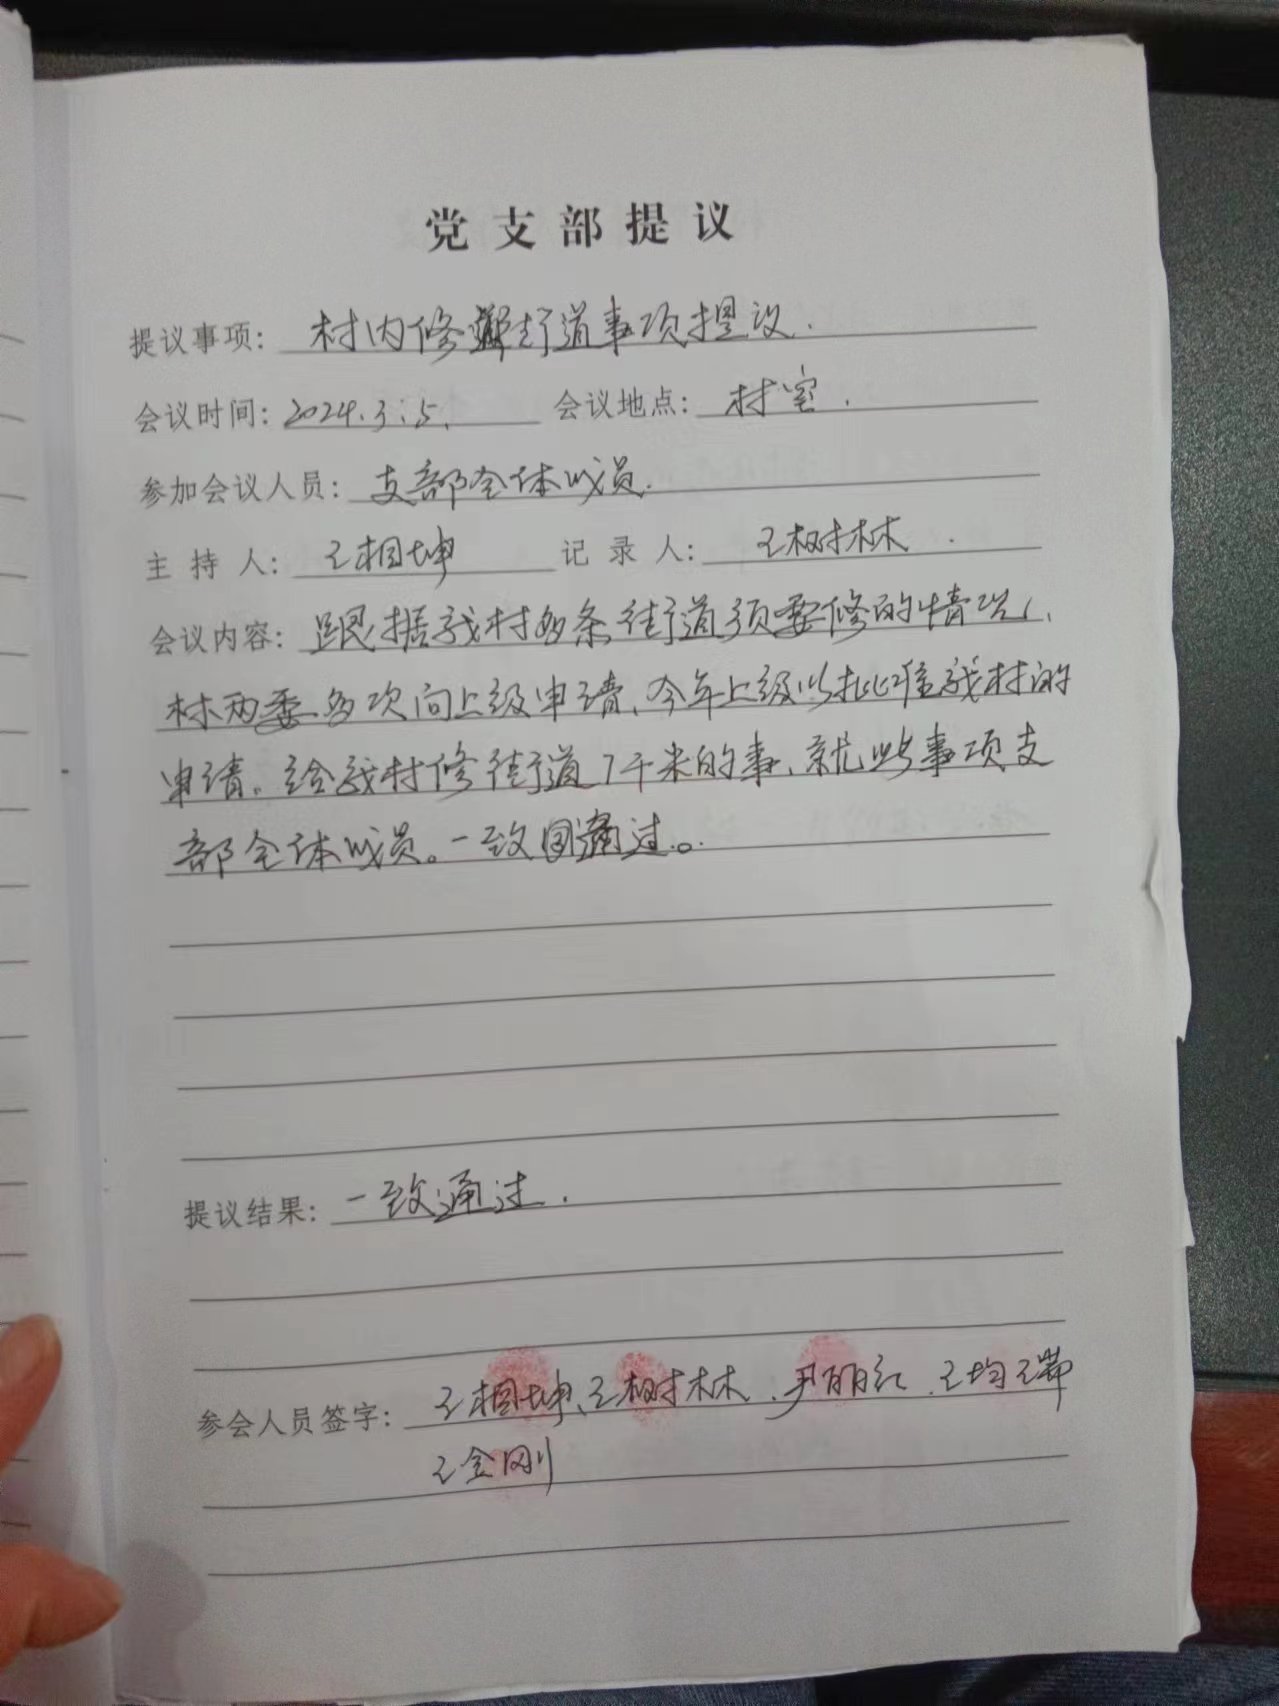 党支部提议
提议事项: 村内修街道事项提议.
会议时间: 2024.3.5. 会议地点: 村室.
参加会议人员: 支部全体成员.
主持人: 王相坤 记录人: 王树林.
会议内容: 跟据我村多条街道须要修的情况,
村两委多次向上级申请、今年上级以批准我村的
申请。给我村修街道7千米的事、就此事项支
部全体成员。一致通过。
提议结果: 一致通过.
参会人员签字: 王相坤、王树林、尹丽红、王均
王金刚